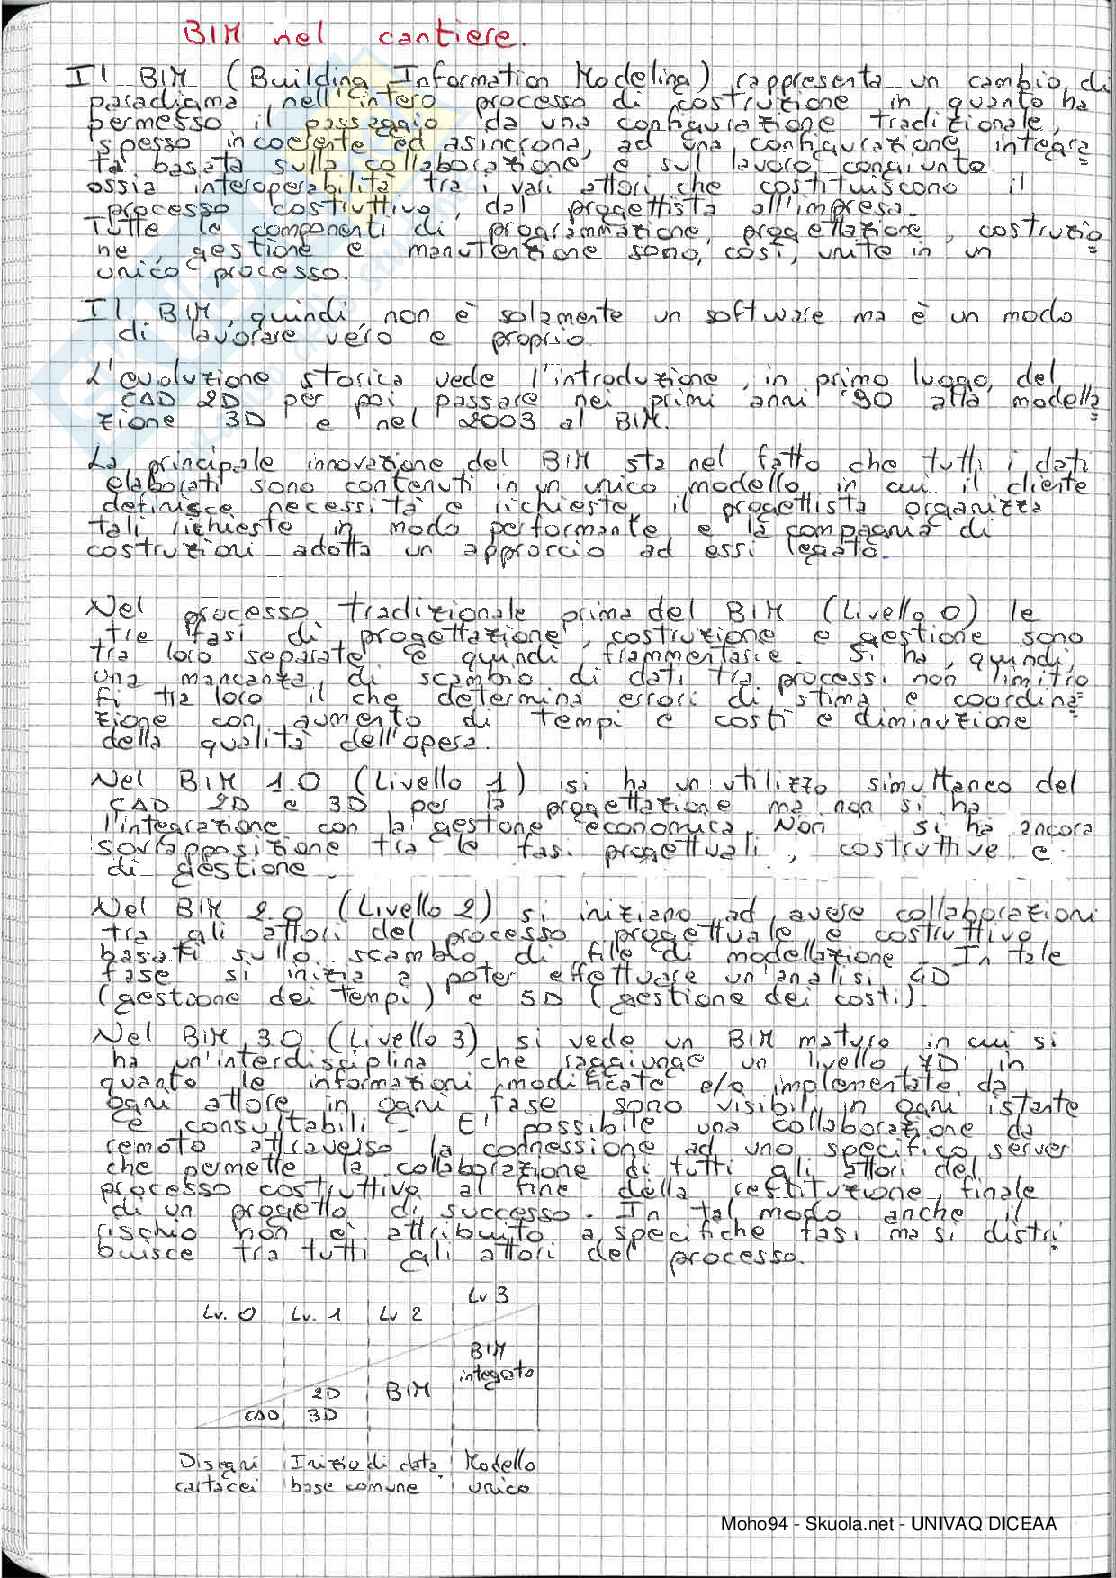 BIM nel cantiere.
Il BIM (Building Information Modeling) rappresenta un cambio di
paradigma nell'intero processo di costruzione in quanto ha
permesso il passaggio da una configurazione tradizionale,
spesso incoerente ed asincrona, ad una configurazione integra
ta basata sulla collaborazione e sul lavoro congiunto
ossia interoperabilità tra i vari attori che costituiscono il
processo costruttivo, dal progettista all'impresa.
Tutte le componenti di programmazione, progettazione, costruzio
ne, gestione e manutenzione sono, così, unite in un
unico processo.
Il BIM, quindi, non è solamente un software ma è un modo
di lavorare vero e proprio.
L'evoluzione storica vede l'introduzione, in primo luogo, del
CAD 2D per poi passare nei primi anni '90 alla modella
zione 3D e nel 2003 al BIM.
La principale innovazione del BIM sta nel fatto che tutti i dati
elaborati sono contenuti in un unico modello in cui il cliente
definisce necessità e richieste, il progettista organizza
tali richieste in modo performante e la compagnia di
costruzioni adotta un approccio ad essi legato.
Nel processo tradizionale prima del BIM (Livello 0) le
tre fasi di progettazione, costruzione e gestione sono
tra loro separate e quindi frammentarie. Si ha, quindi,
una mancanza di scambio di dati tra processi non limitro
fi tra loro il che determina errori di stima e coordina=
zione con aumento di tempi e costi e diminuzione
della qualità dell'opera.
Nel BIM 1.0 (Livello 1) si ha un utilizzo simultaneo del
CAD 2D e 3D per la progettazione ma non si ha
l'integrazione con la gestone economica. Non si ha ancora
sovrapposizione tra le fasi progettuali, costruttive e
di gestione.
Nel BIM 2.0 (Livello 2) si iniziano ad avere collaborazioni
tra gli attori del processo progettuale e costruttivo
basati sullo scambio di file di modellazione. In tale
fase si inizia a poter effettuare un'analisi 4D
(gestione dei tempi) e 5D (gestione dei costi).
Nel BIM 3.0 (Livello 3) si vede un BIM maturo in cui si
ha un'interdisciplina che raggiunge un livello 7D in
quanto le informazioni modificate e/o implementate da
ogni attore in ogni fase sono visibili in ogni istante
e consultabili. E' possibile una collaborazione da
remoto attraverso la connessione ad uno specifico server
che permette la collaborazione di tutti gli attori del
processo costruttivo al fine della restituzione finale
di un progetto di successo. In tal modo anche il
rischio non è attribuito a specifiche fasi ma si distri
buisce tra tutti gli attori del processo.
Lv. 0 Lv. 1 Lv 2 Lv 3
BIM
integrato
2D BIM
CAD 3D
Disegni Inizio di data Modello
cartacei base comune unico
Moho94 - Skuola.net - UNIVAQ DICEAA